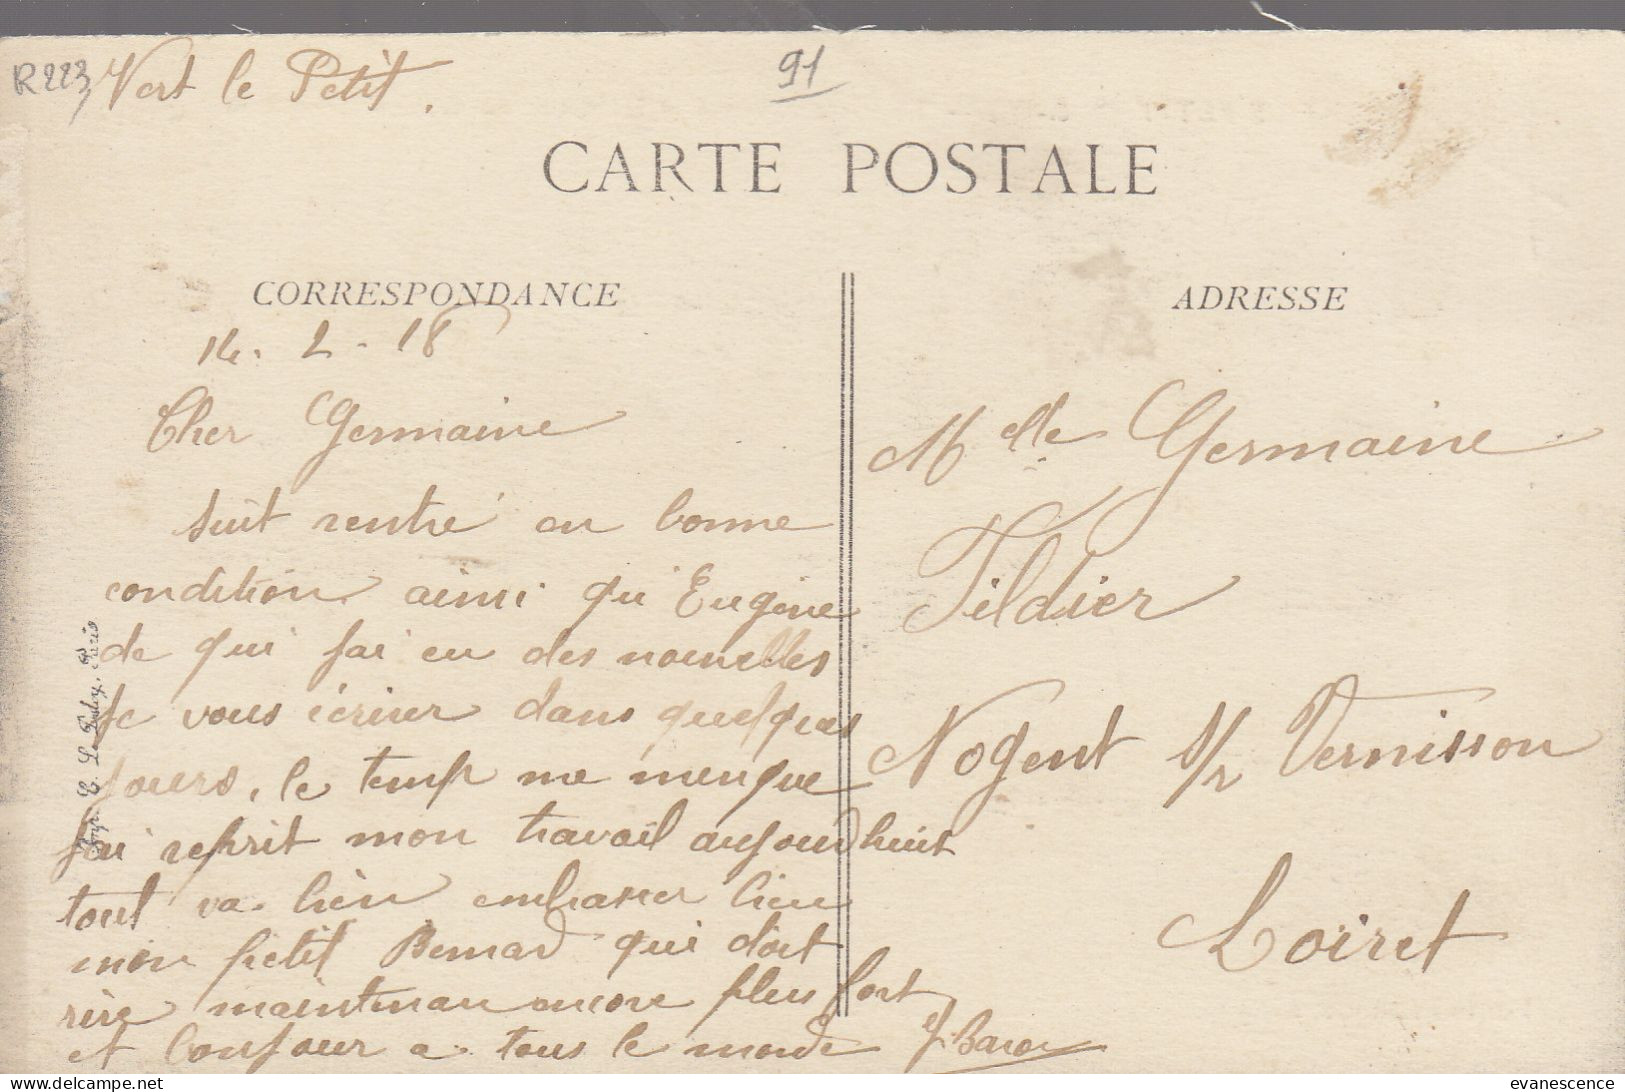 R223 Vert le Petit.
91
CARTE POSTALE
CORRESPONDANCE
14. 2. 18
Cher Germaine
suit rentré en bonne
condition ainsi qu'Eugène
de qui j'ai eu des nouvelles
Je vous écriver dans quelques
jours, le temp me menque
j'ai reprit mon travail aujourdhuit
tout va bien embrasser bien
mon petit Bernard qui doit
rire maintenan encore plus fort
et bonjour a tous le monde J. Baron
Imp. E. Le Deley, Paris
ADRESSE
Melle Germaine
Tildier
Nogent s/r Vernisson
Loiret
evanescence